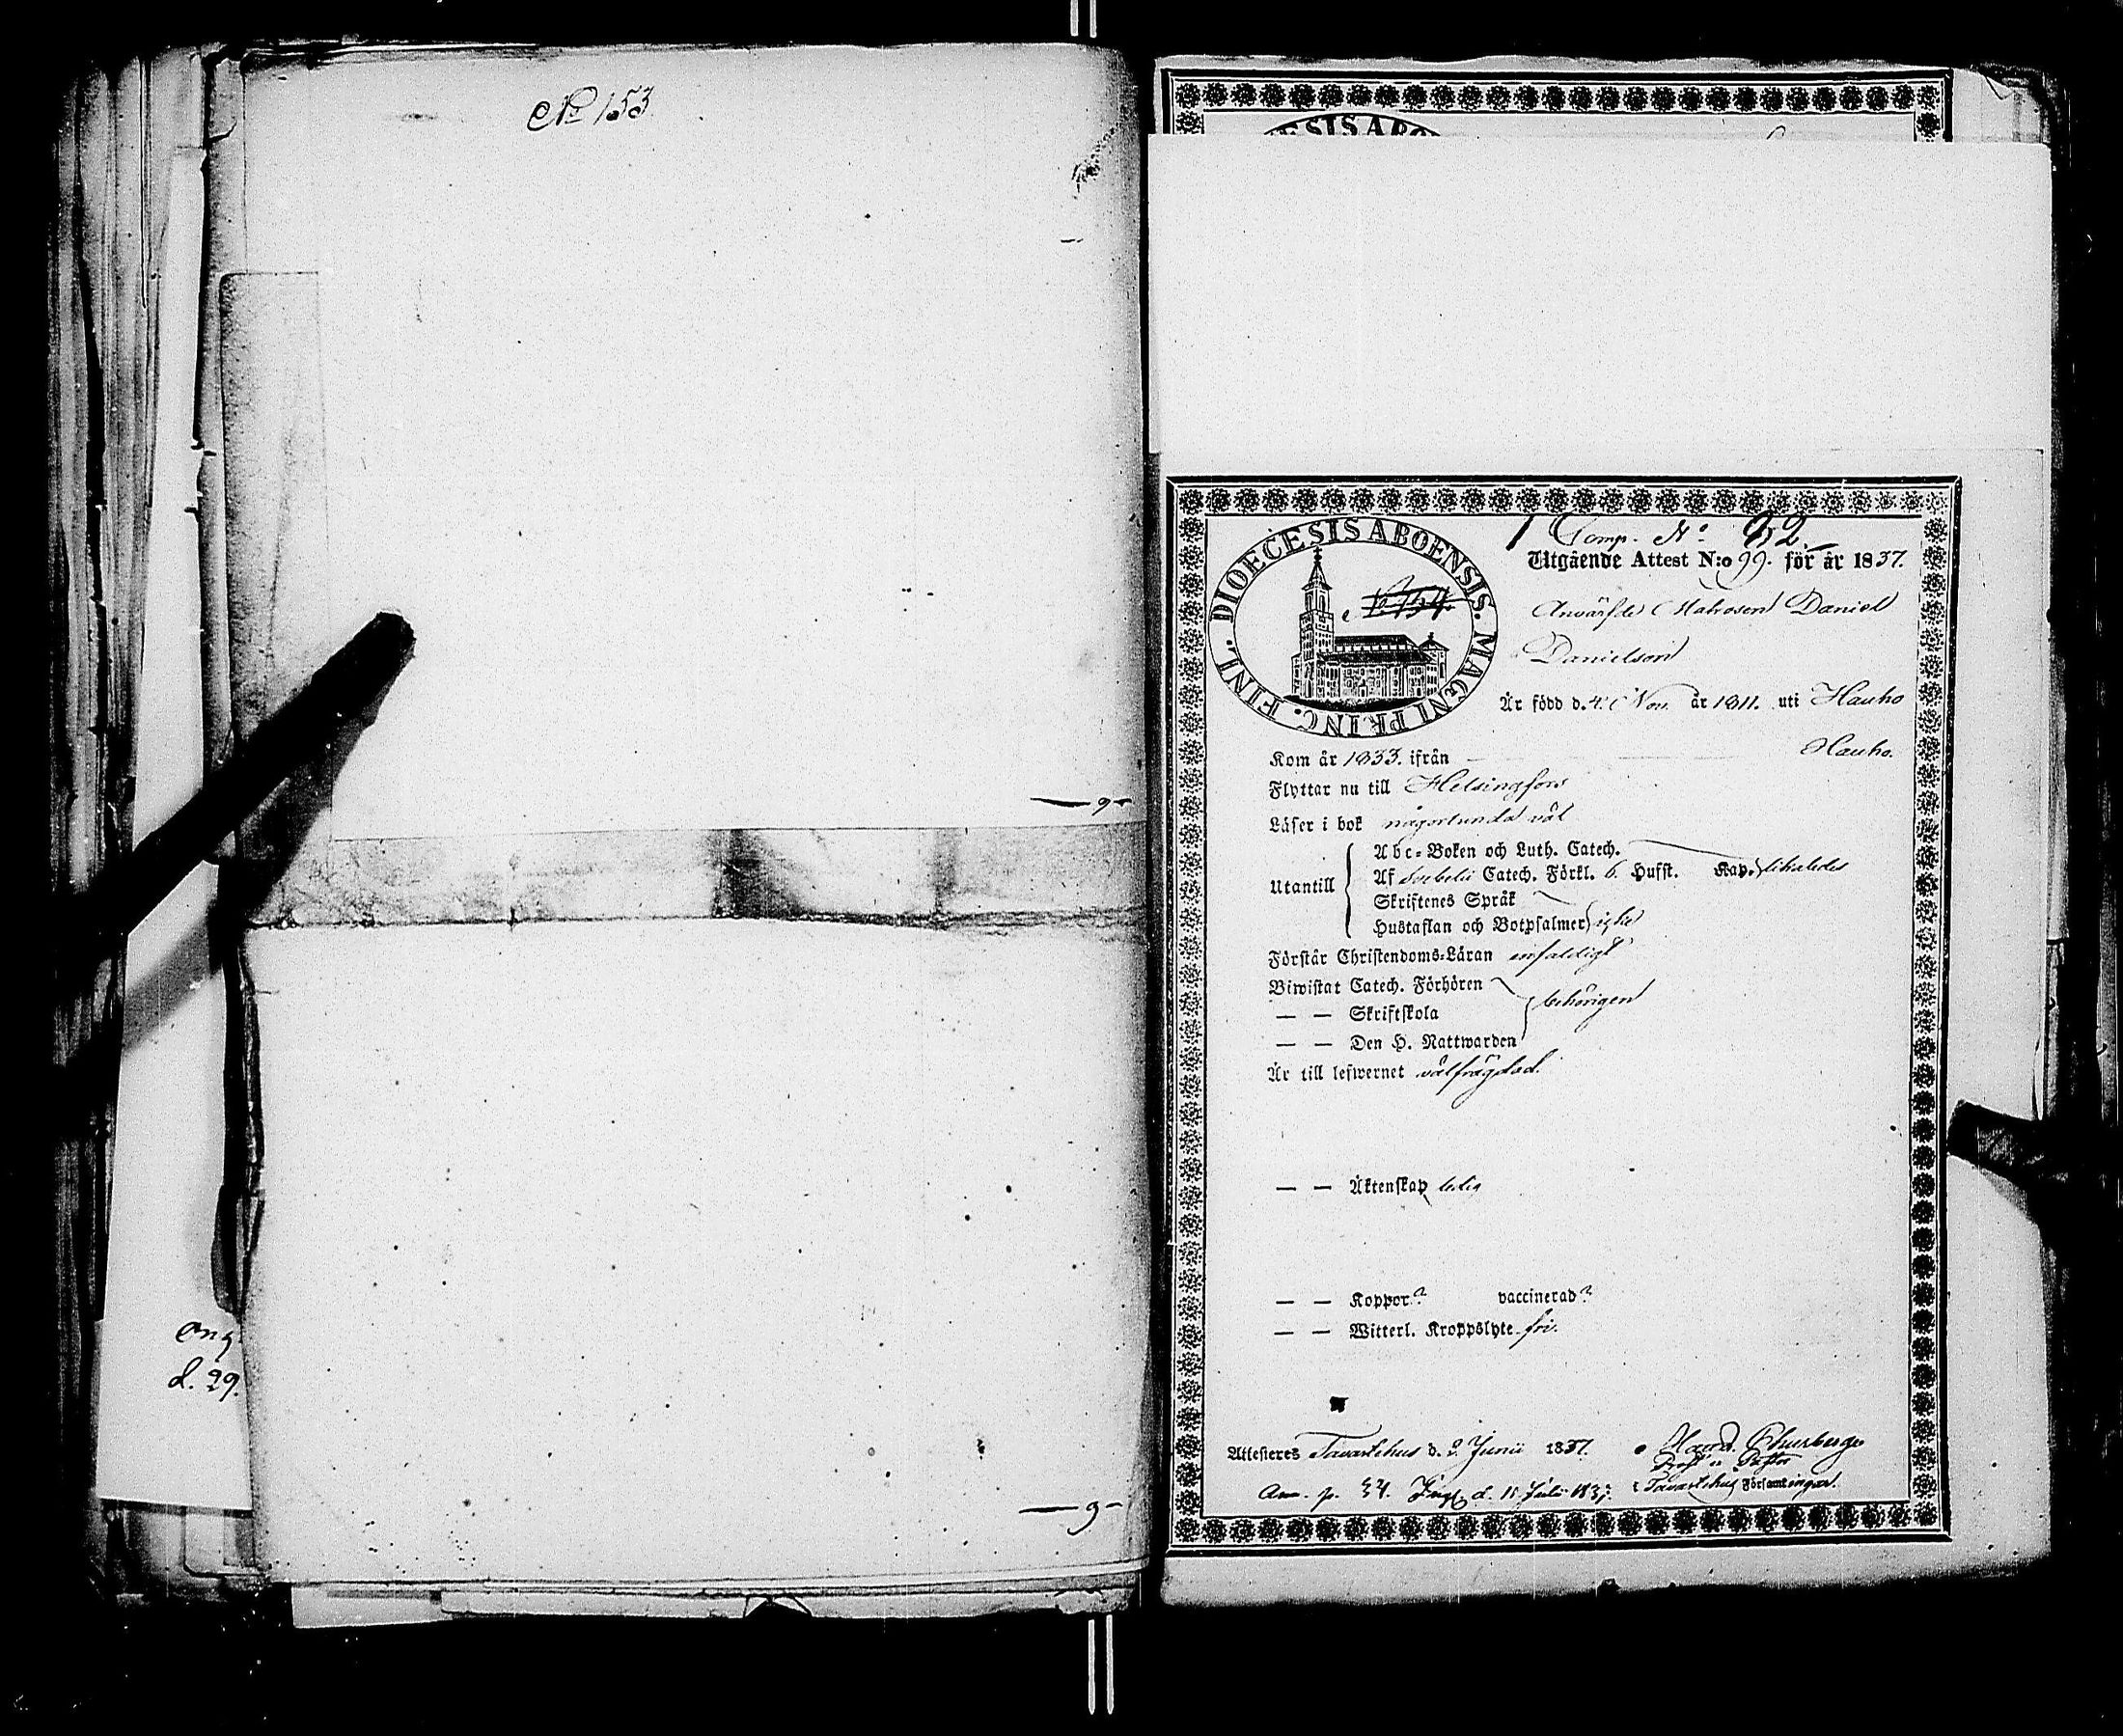 No 153
9
9
ong
d. 29.
ESIS ABO
DIOECESIS ABOENSIS. MAGNI PRINC. FINL.
No 154.
1 Comp. No 32
Utgående Attest N:o 99. för år 1837.
Anvärfde Matrosen Daniel
Danielson
Är född d. 4 Nov. år 1811. uti Hauho
Kom år 1833. ifrån Hauho.
Flyttar nu till Helsingfors
Läser i bok någorlunda väl
Utantill
Abc-Boken och Luth. Catech.
Af Svebelii Catech. Förkl. 6. Hufst. Kap. likaledes
Skriftenes Språk
Hustaflan och Botpsalmer icke
Förstår Christendoms-Läran enfaldigt
Biwistat Catech. Förhören
— — Skriftskola behörigen
— — Den H. Nattwarden
Är till lefwernet välfrägdad.
— — Äktenskap ledig
— — Koppor? vaccinerad?
— — Witterl. Kroppslyte fri.
Attesteres Tavastehus d. 2 Junii 1837.
Prost o Pastor
Tavastehus Församlingar.
Ann. p. 34. d. 11 Julii 1837.